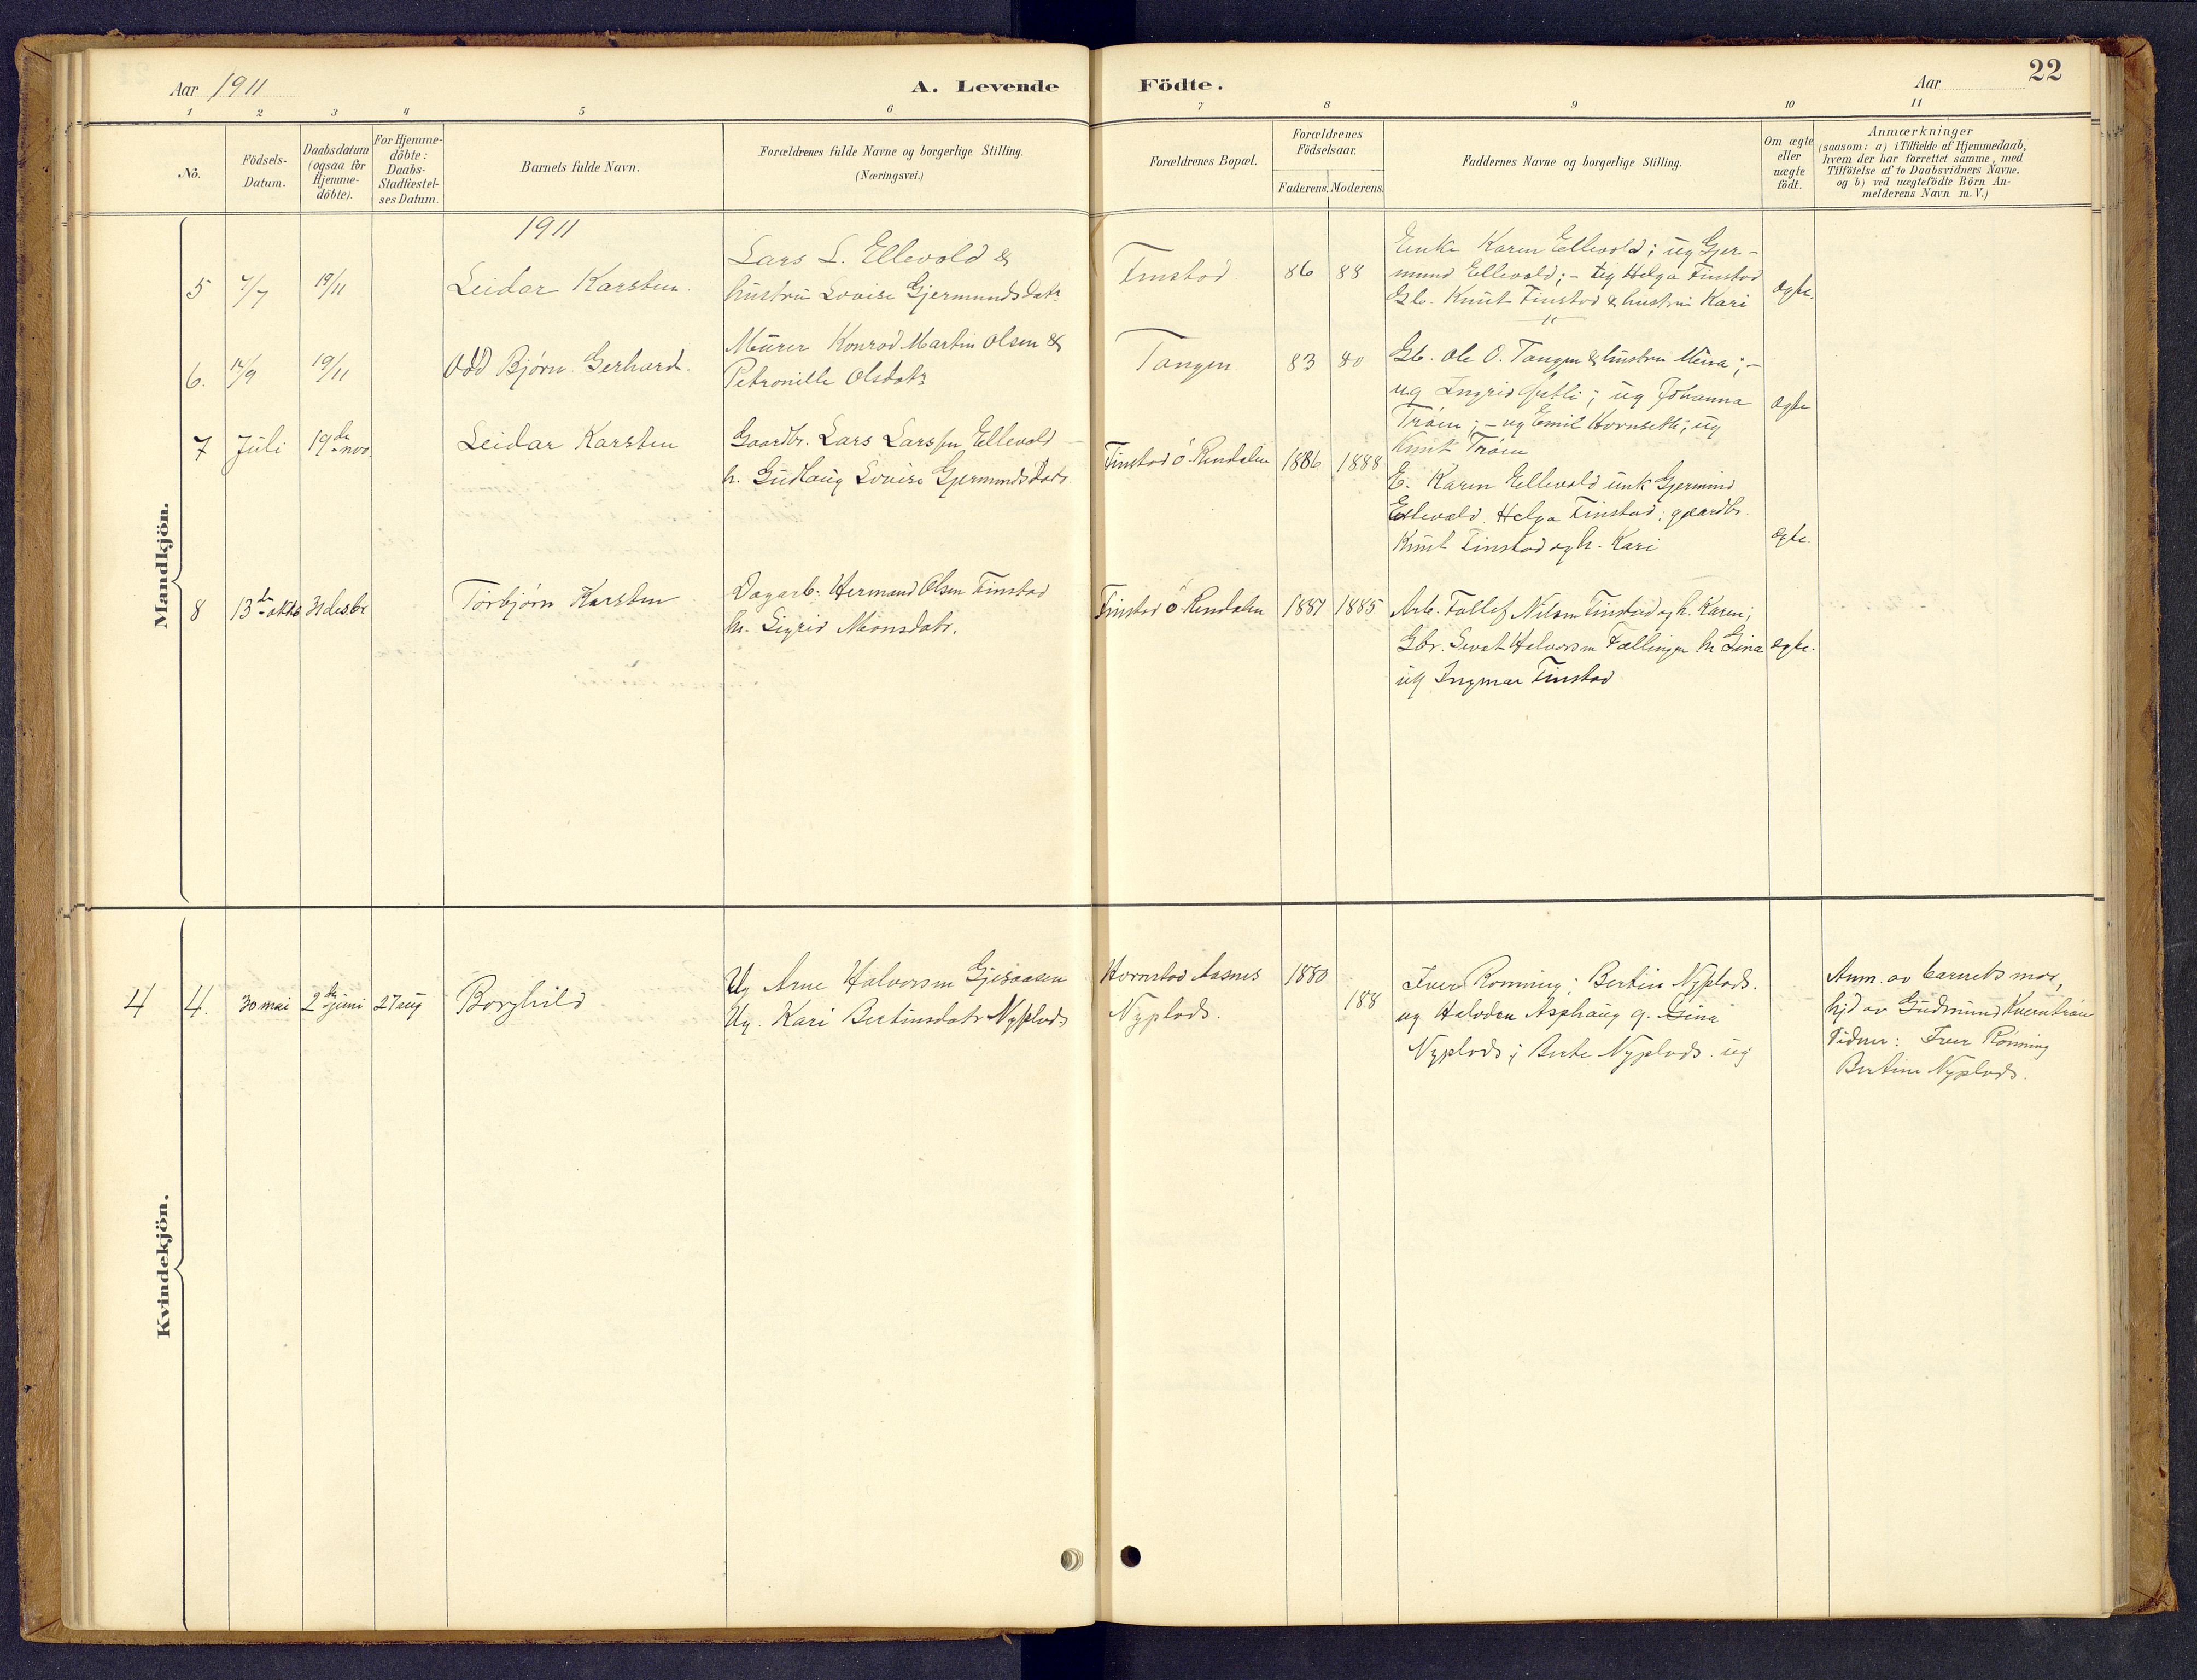 Aar 1911
A. Levende
Födte.
Aar
22
1 2 3 4 5 6 7 8 9 10 11
No.
Födsels-
Datum.
Daabsdatum
(ogsaa för
Hjemme-
döbte).
For Hjemme-
döbte:
Daabs-
Stadfæstel-
ses Datum.
Barnets fulde Navn.
Forældrenes fulde Navne og borgerlige Stilling.
(Næringsvei.)
Forældrenes Bopæl.
Forældrenes
Födselsaar.
Faderens. Moderens.
Faddernes Navne og borgerlige Stilling.
Om ægte
eller
uægte
födt.
Anmærkninger
(saasom: a) i Tilfælde af Hjemmedaab,
hvem der har forrettet samme, med
Tilföielse af to Daabsvidners Navne,
og b) ved uægtefödte Börn An-
melderens Navn m.V.)
Mandkjön.
1911
5 7/7 19/11
Leidar Karsten.
Lars L. Ellevold &
hustru Lovise Gjermundsdatr
Finstad
86 88
Enke Karen Ellevold; ug Gjer-
mund Ellevold; - ug Helga Finstad
Gb. Knut Finstad & hustru Kari
ægte.
6. 12/9 19/11
Odd Bjørn Gerhard.
Murer Konrad Martin Olsen &
Petronille Olsdatr
Tangen
83 80
Gb. Ole O. Tangen & hustru Mina; -
ug Ingrid ; ug Johanna
Trøen; - ug Emil Hornseth; ug
Knut Trøen
ægte
7 Juli 19de nov.
Leidar Karsten
Gaardbr. Lars Larsen Ellevold
h. Gudlaug Lovise Gjermundsdatr.
Finstad ö. Rendalen
1886 1888
E. Karen Ellevold unk Gjermund
Ellevold Helga Finstad; gaardbr.
Knut Finstad og h. Kari
ægte.
8 13de oktb 31 desbr
Torbjørn Karsten
Dagarb. Hermand Olsen Finstad
h. Sigrid Monsdatr.
Finstad ö. Rendalen
1887 1885
Arb. Tollef Nilsen Finstad og h. Karen;
Gbr. Sevat Halvorsen Fællingen h. Gina
ug Ingmar Finstad
ægte.
Kvindekjön.
4 4. 30 mai 2den juni 27 aug
Borghild
Ug Arne Halvorsen Gjesaasen
Ug. Kari Bertinsdatr Nyplads
Hornstad Aasnes
Nyplads.
1880
188
Iver Rønning; Bertin Nyplads.
ug Halvdan Asphaug g. Gina
Nyplads; Berte Nyplads. ug
Anm. av barnets mor,
hjd av Gudmund Kverntrøen
Vidner: Iver Rønning
Bertine Nyplads.